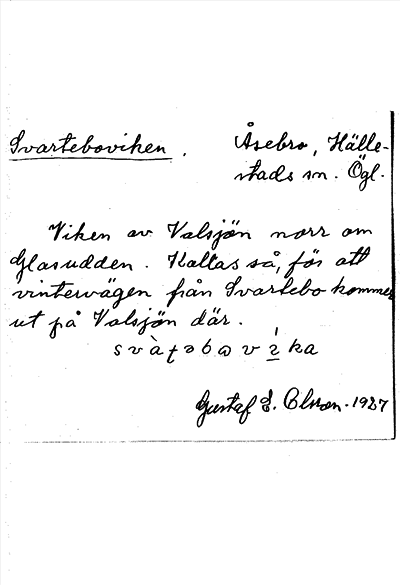 Svarteboviken. Åsebro, Hälle-
stads sn. Ögl.
Viken av Valsjön norr om
Glasudden. Kallas så, för att
vintervägen från Svartebo kommer
ut på Valsjön där.
Gustaf E. Olsson. 1927